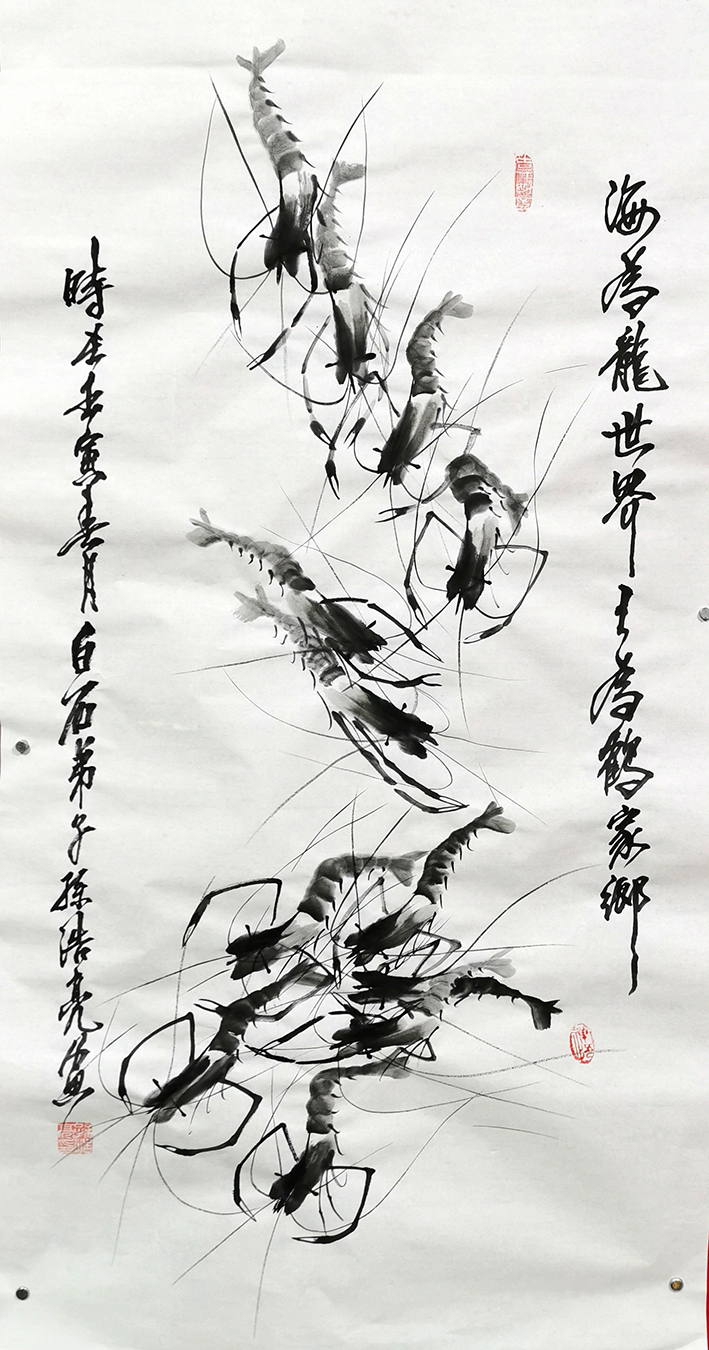 海為龍世界天為鶴家鄉
時在壬寅年春月白石弟子孫浩亮畫